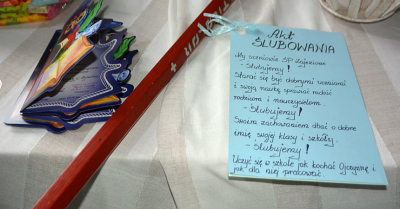 Akt
ŚLUBOWANIA
My uczniowie SP Zajezierze
- Ślubujemy!
Starać się być dobrymi uczniami
i swoją nauką sprawiać radość
rodzicom i nauczycielom.
- Ślubujemy!
Swoim zachowaniem dbać o dobre
imię swojej klasy i szkoły.
- Ślubujemy!
Uczyć się w szkole jak kochać Ojczyznę i
jak dla niej pracować.